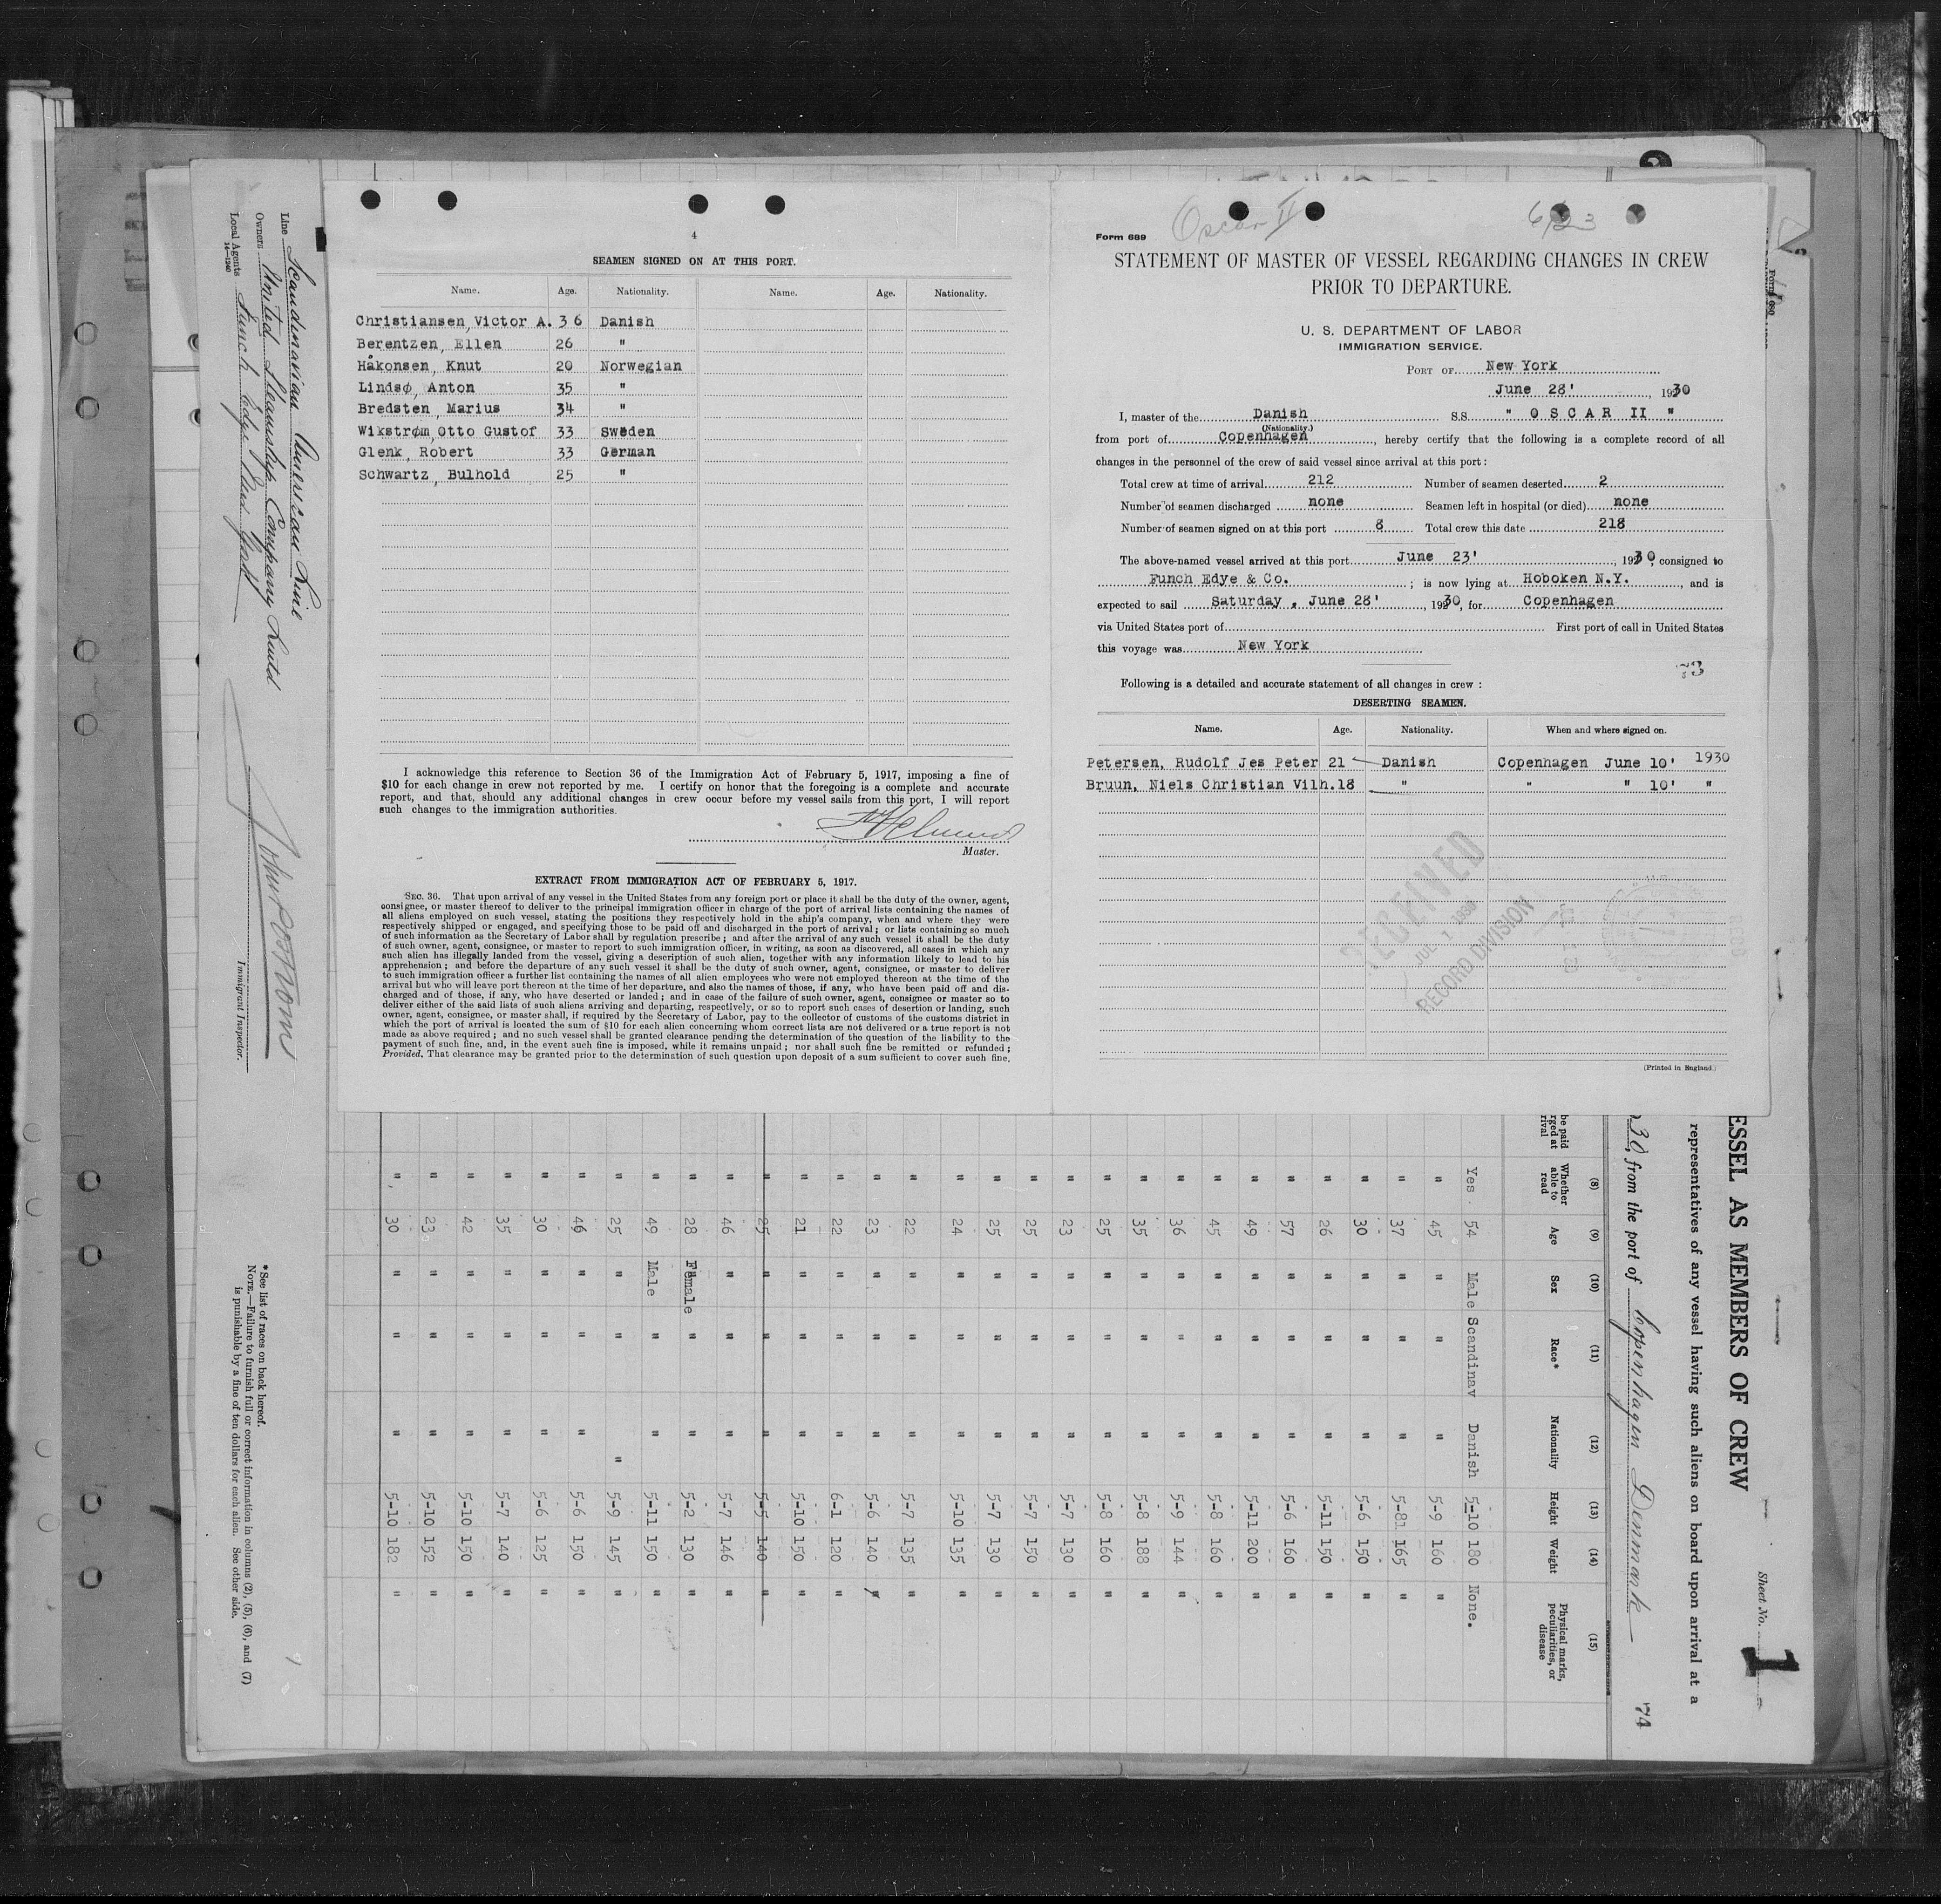 4
SEAMEN SIGNED ON AT THIS PORT.
Name. Age. Nationality. Name. Age. Nationality.
Christiansen, Victor A. 36 Danish
Berentzen, Ellen 26 "
Håkonsen, Knut 20 Norwegian
Lindsø, Anton 35 "
Bredsten, Marius 34 "
Wikstrøm, Otto Gustof 33 Sweden
Glenk, Robert 33 German
Schwartz, Bulhold 25 "
I acknowledge this reference to Section 36 of the Immigration Act of February 5, 1917, imposing a fine of
$10 for each change in crew not reported by me. I certify on honor that the foregoing is a complete and accurate
report, and that, should any additional changes in crew occur before my vessel sails from this port, I will report
such changes to the immigration authorities.
Master.
EXTRACT FROM IMMIGRATION ACT OF FEBRUARY 5, 1917.
SEC. 36. That upon arrival of any vessel in the United States from any foreign port or place it shall be the duty of the owner, agent,
consignee, or master thereof to deliver to the principal immigration officer in charge of the port of arrival lists containing the names of
all aliens employed on such vessel, stating the positions they respectively hold in the ship's company, when and where they were
respectively shipped or engaged, and specifying those to be paid off and discharged in the port of arrival; or lists containing so much
of such information as the Secretary of Labor shall by regulation prescribe; and after the arrival of any such vessel it shall be the duty
of such owner, agent, consignee, or master to report to such immigration officer, in writing, as soon as discovered, all cases in which any
such alien has illegally landed from the vessel, giving a description of such alien, together with any information likely to lead to his
apprehension; and before the departure of any such vessel it shall be the duty of such owner, agent, consignee, or master to deliver
to such immigration officer a further list containing the names of all alien employees who were not employed thereon at the time of the
arrival but who will leave port thereon at the time of her departure, and also the names of those, if any, who have been paid off and dis-
charged and of those, if any, who have deserted or landed; and in case of the failure of such owner, agent, consignee or master so to
deliver either of the said lists of such aliens arriving and departing, respectively, or so to report such cases of desertion or landing, such
owner, agent, consignee, or master shall, if required by the Secretary of Labor, pay to the collector of customs of the customs district in
which the port of arrival is located the sum of $10 for each alien concerning whom correct lists are not delivered or a true report is not
made as above required; and no such vessel shall be granted clearance pending the determination of the question of the liability to the
payment of such fine, and, in the event such fine is imposed, while it remains unpaid; nor shall such fine be remitted or refunded;
Provided, That clearance may be granted prior to the determination of such question upon deposit of a sum sufficient to cover such fine.
Oscar II 6/23
Form 689
STATEMENT OF MASTER OF VESSEL REGARDING CHANGES IN CREW
PRIOR TO DEPARTURE.
U. S. DEPARTMENT OF LABOR
IMMIGRATION SERVICE.
PORT OF New York
June 28' , 1930
I, master of the Danish S.S. " OSCAR II "
(Nationality.)
from port of Copenhagen , hereby certify that the following is a complete record of all
changes in the personnel of the crew of said vessel since arrival at this port:
Total crew at time of arrival 212 Number of seamen deserted 2
Number of seamen discharged none Seamen left in hospital (or died) none
Number of seamen signed on at this port 8 Total crew this date 218
The above-named vessel arrived at this port June 23' , 1930, consigned to
Funch Edye & Co. ; is now lying at Hoboken N.Y. , and is
expected to sail Saturday , June 28' , 1930, for Copenhagen
via United States port of First port of call in United States
this voyage was New York
73
Following is a detailed and accurate statement of all changes in crew:
DESERTING SEAMEN.
Name. Age. Nationality. When and where signed on.
Petersen, Rudolf Jes Peter 21 Danish Copenhagen June 10' 1930
Bruun, Niels Christian Vilh. 18 " " " 10' "
RECEIVED
JUL 1 1930
RECORD DIVISION
(Printed in England.)
Line Scandinavian American Line
Owners United Steamship Company Limtd
Local Agents Funch Edye New York
14-1240
Immigrant Inspector.
* See list of races on back hereof.
NOTE.—Failure to furnish full or correct information in columns (2), (5), (6), and (7)
is punishable by a fine of ten dollars for each alien. See other side.
Form 680
Sheet No. 1
ESSEL AS MEMBERS OF CREW
representatives of any vessel having such aliens on board upon arrival at a
30, from the port of Copenhagen Denmark
74
(8) (9) (10) (11) (12) (13) (14) (15)
be paid
rged at
rival
Whether able to read Age Sex Race* Nationality Height Weight Physical marks, peculiarities, or disease
Yes. 54 Male Scandinav Danish 5-10 180 None.
" 45 " " " 5-9 160 "
" 37 " " " 5-8½ 165 "
" 30 " " " 5-6 150 "
" 26 " " " 5-11 150 "
" 57 " " " 5-6 160 "
" 49 " " " 5-11 200 "
" 45 " " " 5-8 160 "
" 36 " " " 5-9 144 "
" 35 " " " 5-8 188 "
" 25 " " " 5-8 160 "
" 23 " " " 5-7 130 "
" 25 " " " 5-7 150 "
" 25 " " " 5-7 130 "
" 24 " " " 5-10 135 "
" 22 " " " 5-7 135 "
" 23 " " " 5-6 140 "
" 22 " " " 6-1 120 "
" 21 " " " 5-10 150 "
" 25 " " " 5-5 140 "
" 46 " " " 5-7 146 "
" 28 Female " " 5-2 130 "
" 49 Male " " 5-11 150 "
" 25 " " " 5-9 145 "
" 46 " " " 5-6 150 "
" 30 " " " 5-6 125 "
" 35 " " " 5-7 140 "
" 42 " " " 5-10 150 "
" 23 " " " 5-10 152 "
" 30 " " " 5-10 182 "